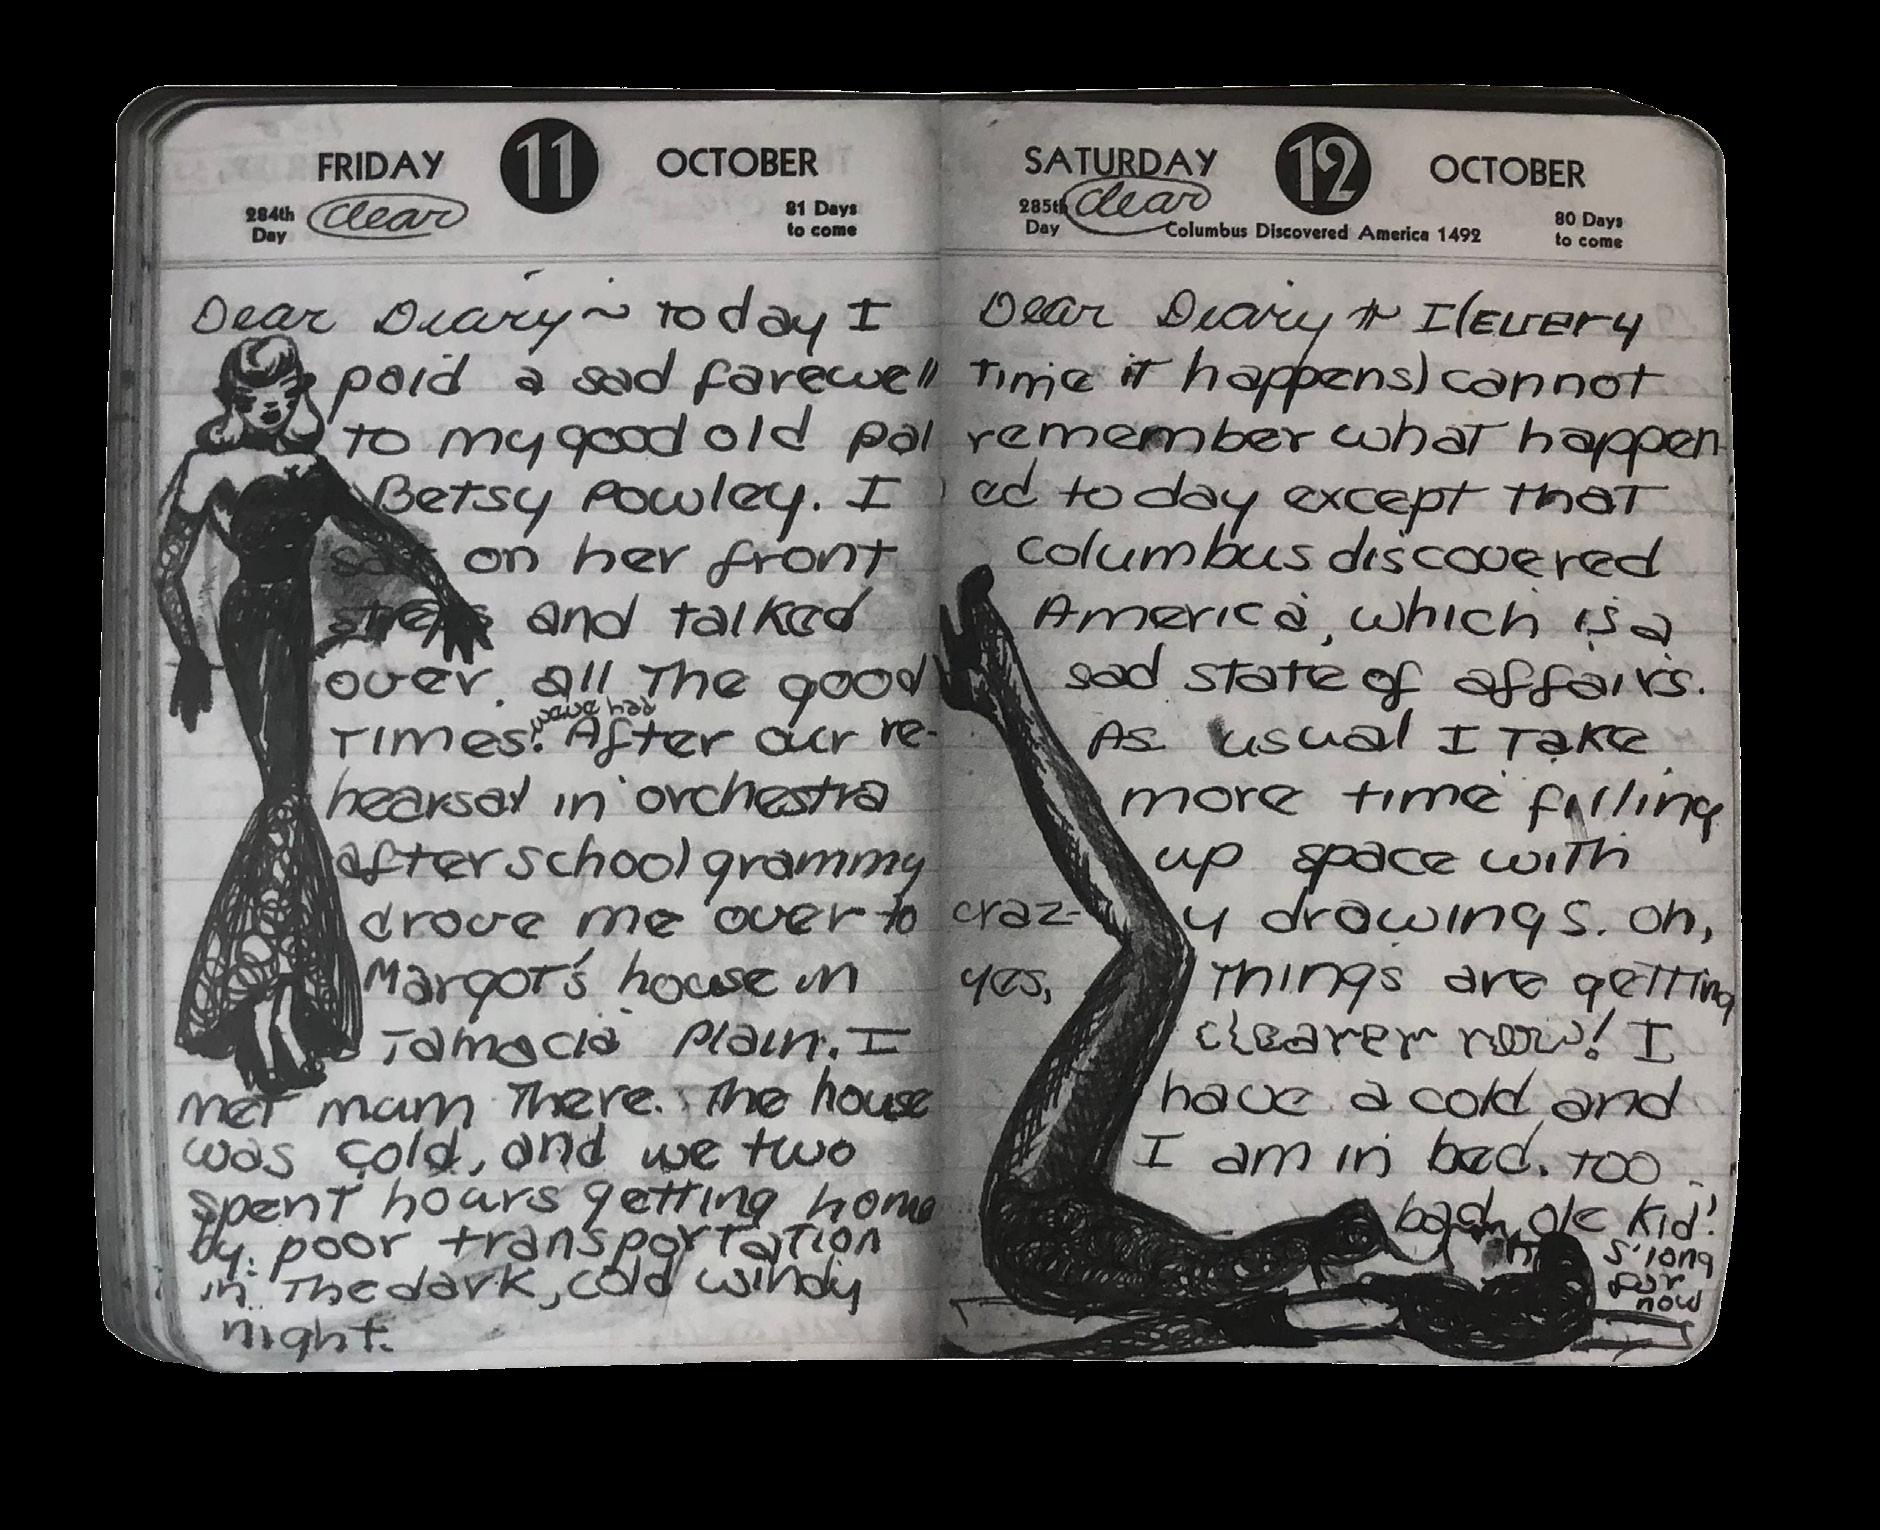 FRIDAY 11 OCTOBER
284th Day
clear
81 Days to come
Dear Diary ~ today I
paid a sad farewell
to my good old pal
Betsy Powley. I
sat on her front
steps and talked
over all the good
times we've had. After our re-
hearsal in orchestra
after school grammy
drove me over to
Margot's house in
Jamacia Plain. I
met mum there. The house
was cold, and we two
spent hours getting home
by poor transportation
in the dark, cold windy
night.
SATURDAY 12 OCTOBER
285th Day
clear
Columbus Discovered America 1492
80 Days to come
Dear Diary ~ I (every
time it happens) cannot
remember what happen
ed today except that
Columbus discovered
America, which is a
sad state of affairs.
As usual I take
more time filling
up space with
craz-y drawings. Oh,
yes, things are getting
clearer now! I
have a cold and
I am in bed. too
bad, ole kid!
S'long
for
now